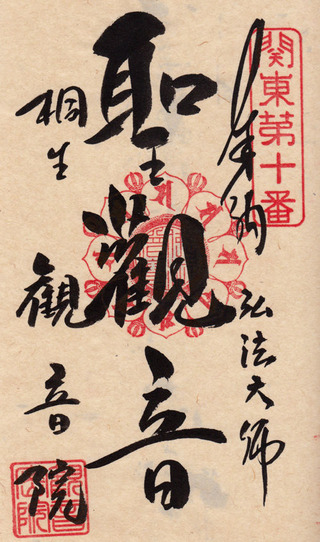 関東第十番
奉納 弘法大師
聖觀音
桐生 観音院